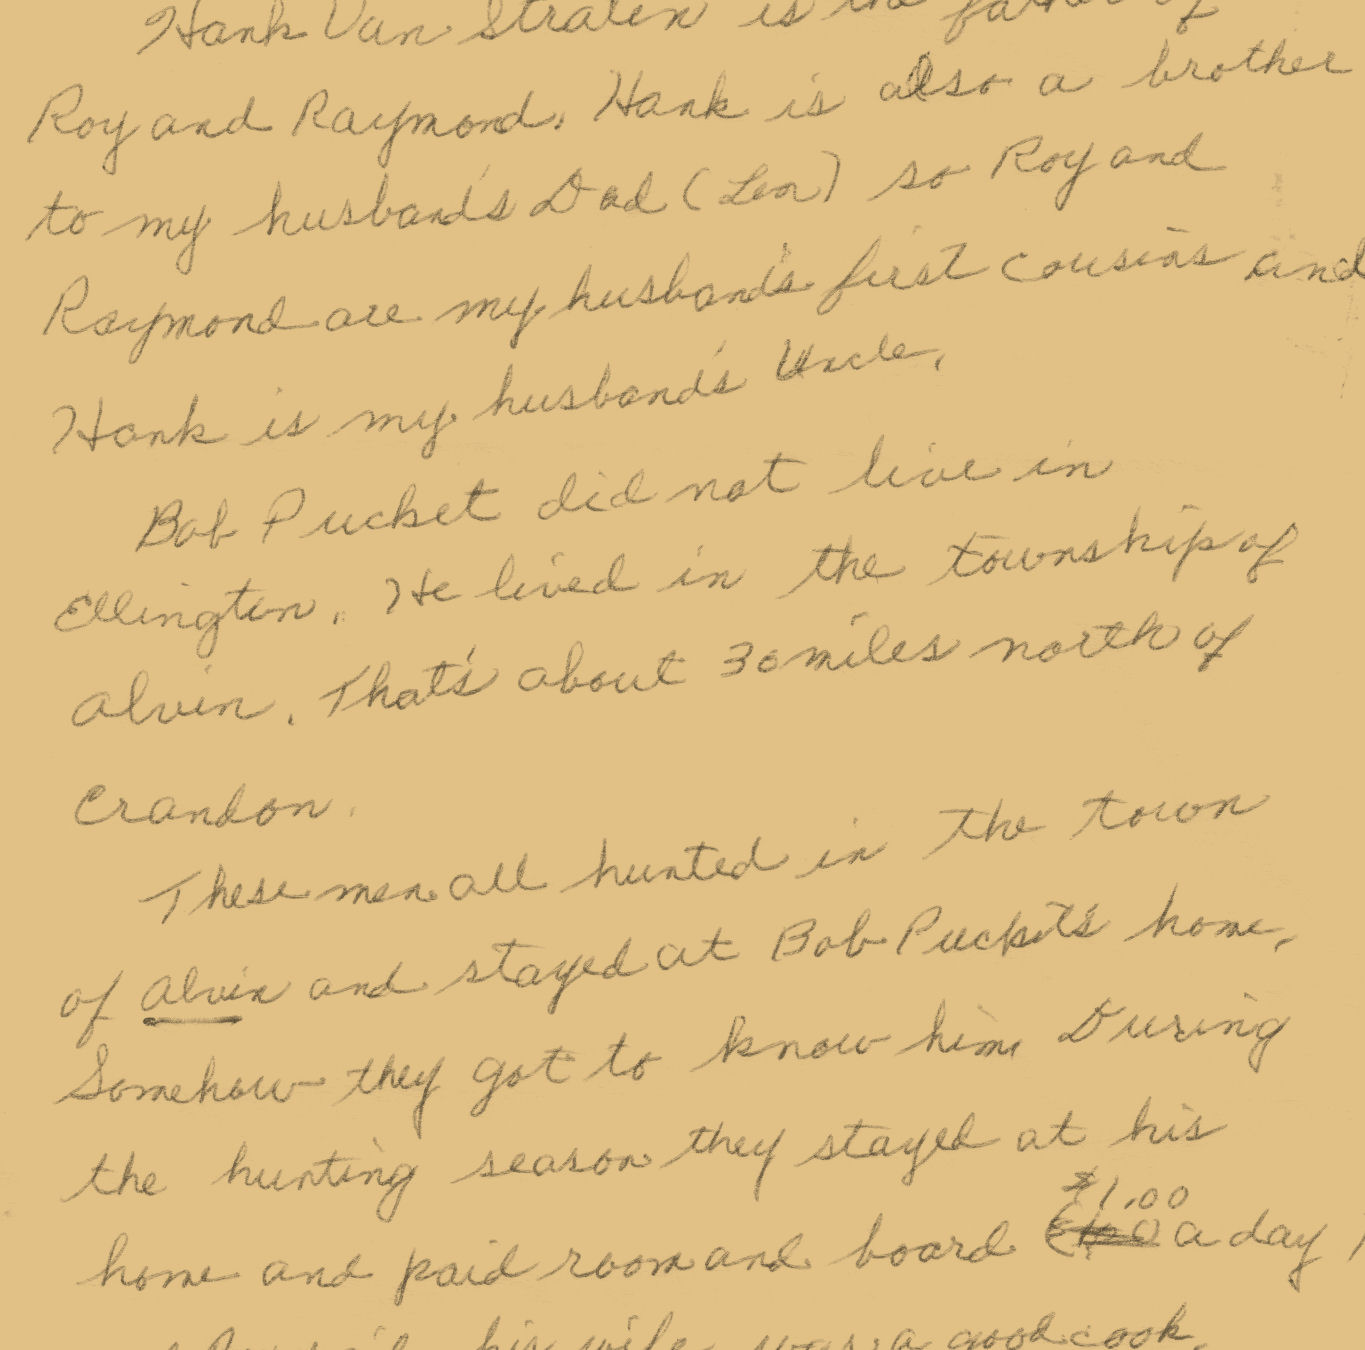 Hank Van Straten is the father of
Roy and Raymond. Hank is also a brother
to my husband's Dad (Len) so Roy and
Raymond are my husband's first cousins and
Hank is my husband's Uncle.
Bob Pucket did not live in
Ellington. He lived in the township of
Alvin. That's about 30 miles north of
Crandon.
These men all hunted in the town
of Alvin and stayed at Bob Pucket's home.
Somehow they got to know him. During
the hunting season they stayed at his
home and paid room and board $1.00 a day
his wife was a good cook.